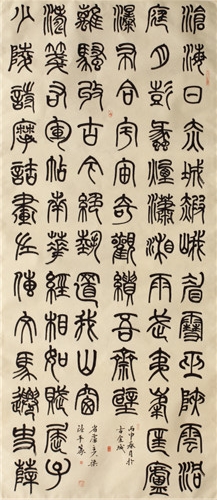 滄海日赤城霞峨眉雪巫峽雲洞
庭月彭蠡煙瀟湘雨武夷峯匡廬
瀑布合宇宙奇觀繪吾齋壁
丙申春月於
古金城
少陵詩摩詰畫左傳文馬遷史薛
濤箋右軍帖南華經相如賦屈子
離騷收古今絕藝置我山窗